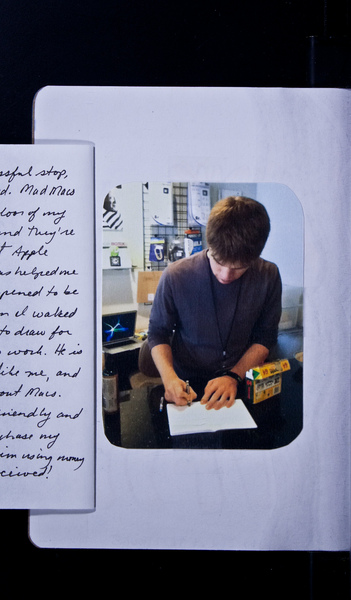 ssful stop,
d. Mad Macs
door of my
and they're
t Apple
as helped me
pened to be
n I walked
to draw for
s work. He is
like me, and
out Macs.
friendly and
chase my
im using money
ceived!